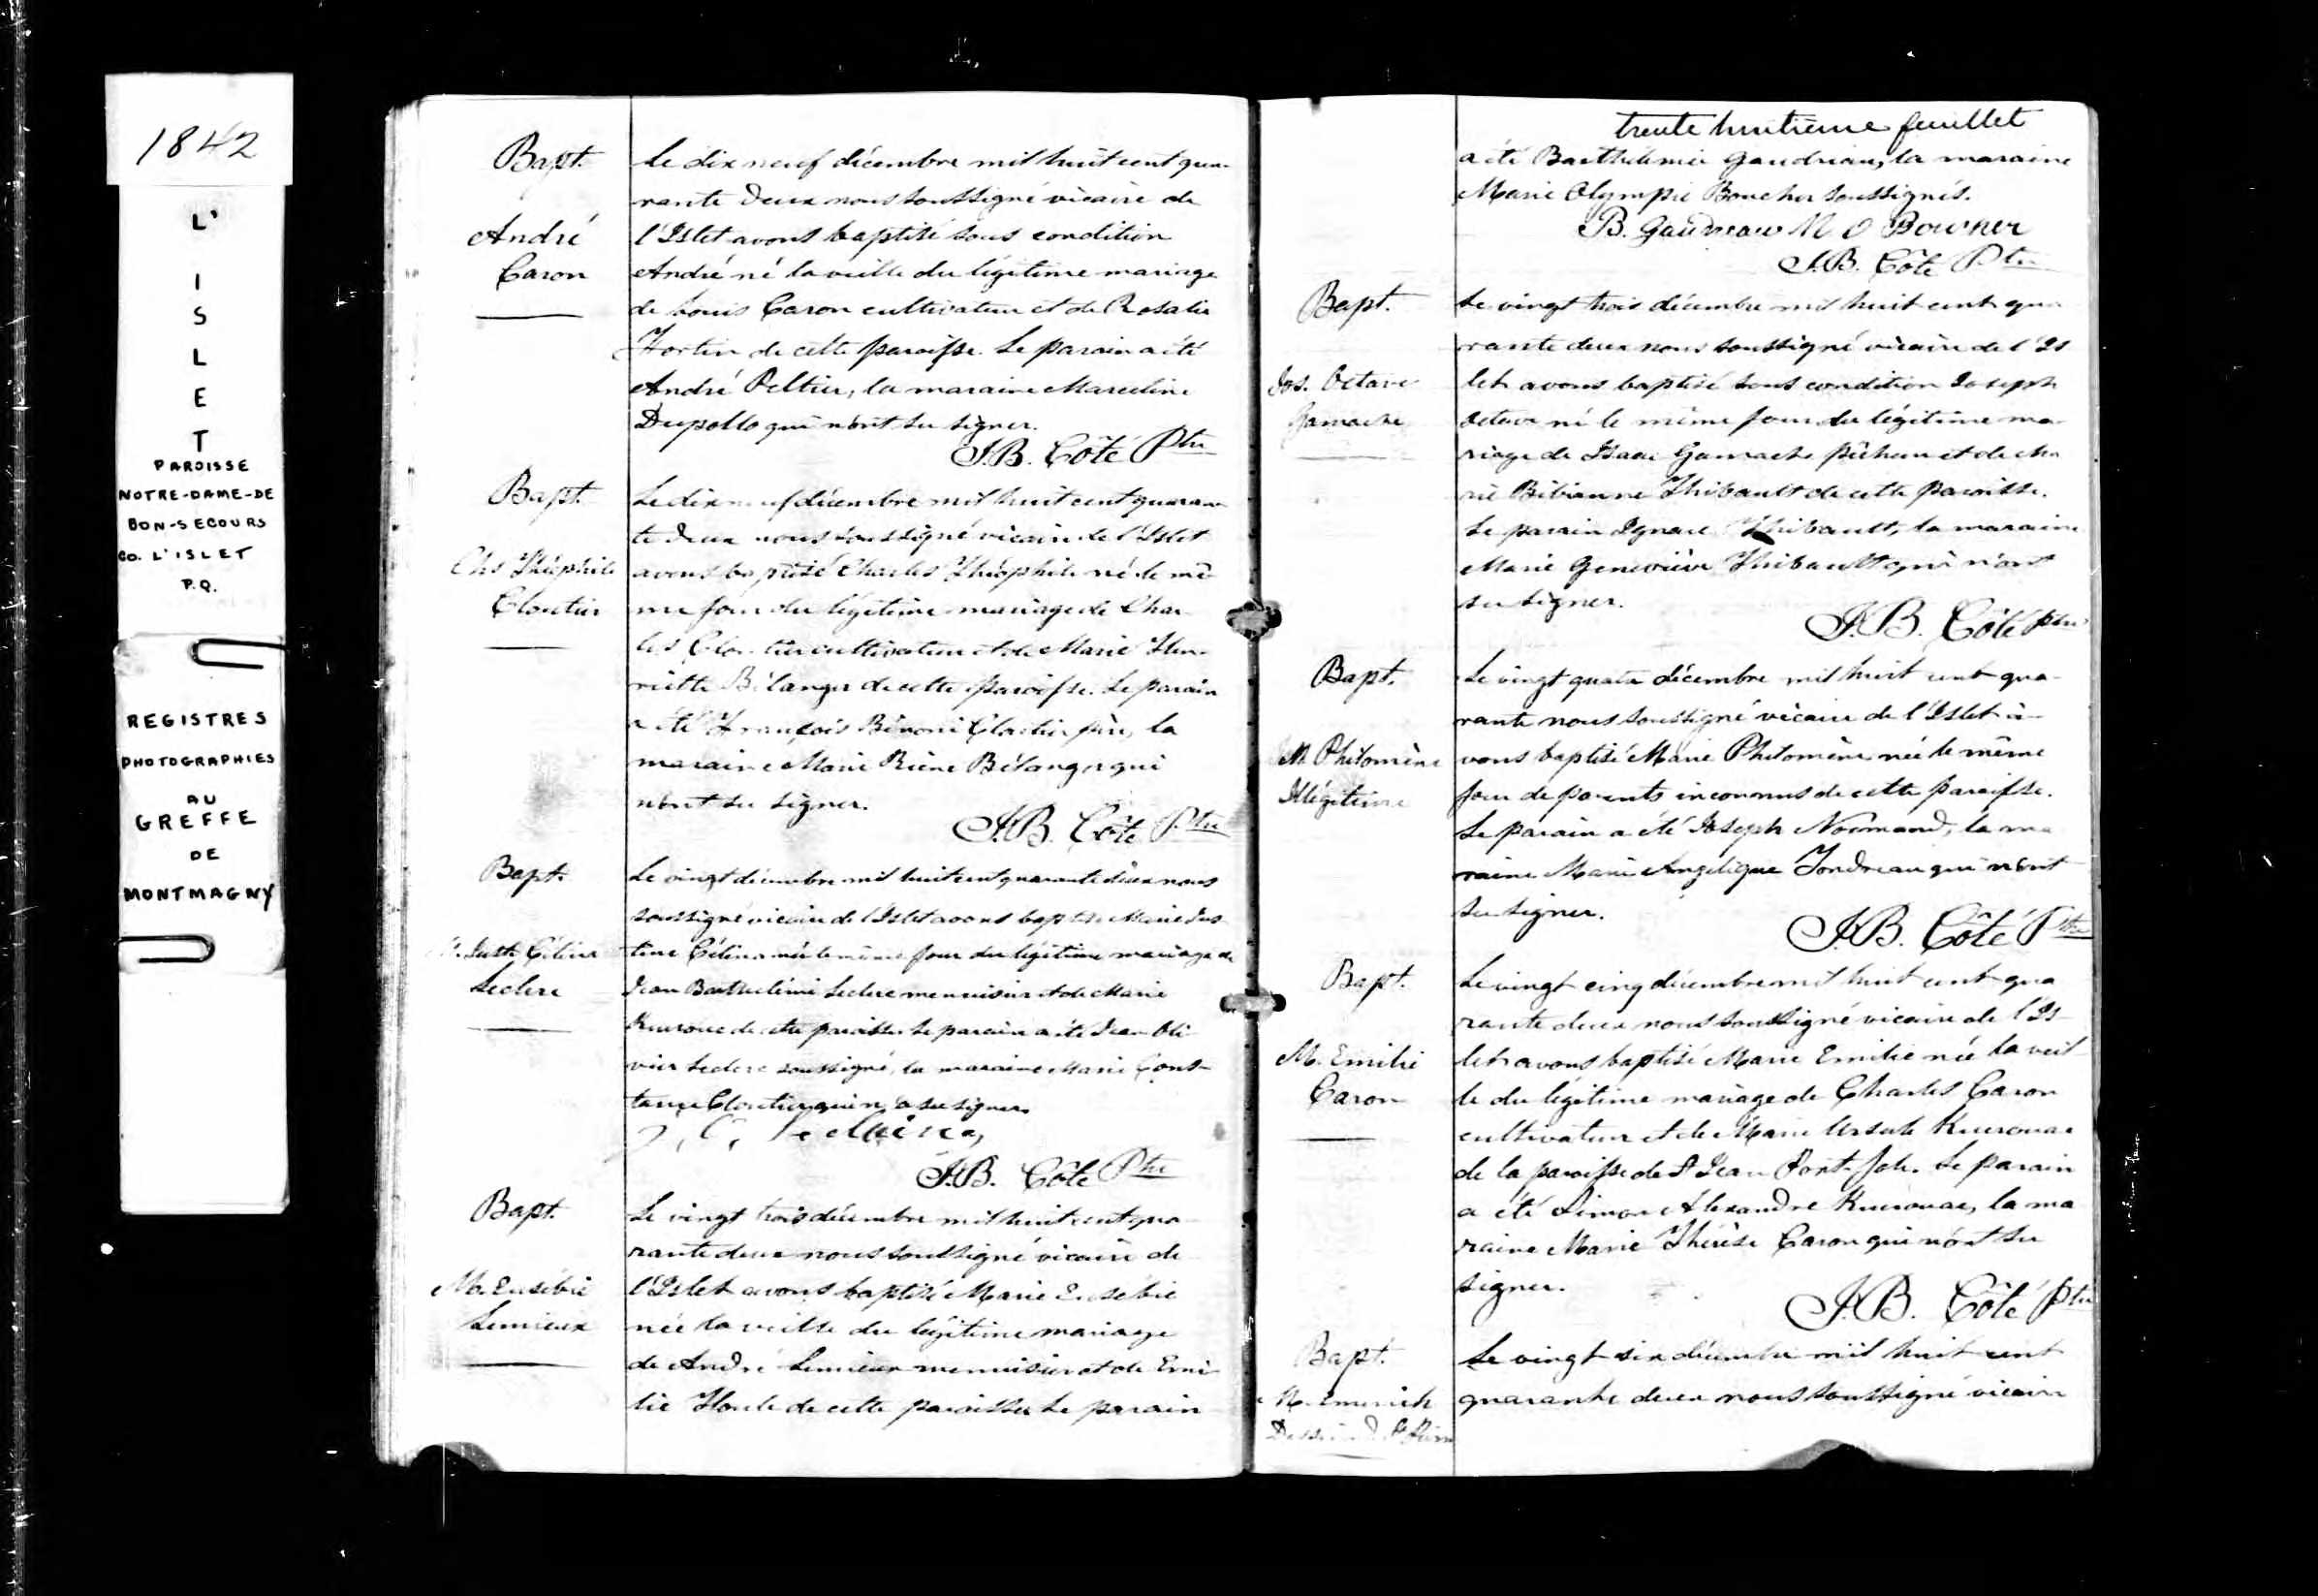 1842
L'
I
S
L
E
T
PAROISSE
NOTRE-DAME-DE
BON-SECOURS
CO. L'ISLET
P.Q.
REGISTRES
PHOTOGRAPHIES
AU
GREFFE
DE
MONTMAGNY
Bapt.
André
Caron
Le dix neuf décembre mil huit cent qua-
rante deux nous soussigné vicaire de
l'Islet avons baptisé sous condition
André né la veille du légitime mariage
de Louis Caron cultivateur et de Rosalie
Fortin de cette paroisse. Le parain a été
André Peltier, la maraine Marceline
qui n'ont su signer.
J.B. Côté Ptre
Bapt.
Chs Théophile
Cloutier
Le dix neuf décembre mil huit cent quaran-
te deux nous soussigné vicaire de l'Islet
avons baptisé Charles Théophile né le mê-
me jour du légitime mariage de Char-
les Cloutier cultivateur et de Marie Hen-
riette Bélanger de cette paroisse. Le parain
a été François Bénoni Cloutier père, la
maraine Marie Reine Bélanger qui
n'ont su signer.
J.B. Côté Ptre
Bapt.
M. Just. Célina
Leclerc
Le vingt décembre mil huit cent quarante deux nous
soussigné vicaire de l'Islet avons baptisé Marie Jus-
tine Célina née le même jour du légitime mariage de
Jean Barthélémi Leclerc menuisier et de Marie
Kuerouac de cette paroisse. Le parain a été Jean Oli-
vier Leclerc soussigné, la maraine Marie Cons-
tance Cloutier qui n'a su signer.
J.B. Côté Ptre
Bapt.
M. Eusébie
Lemieux
Le vingt trois décembre mil huit cent qua-
rante deux nous soussigné vicaire de
l'Islet avons baptisé Marie Eusébie
née la veille du légitime mariage
de André Lemieux menuisier et de Emi-
lie Houle de cette paroisse. Le parain
trente huitième feuillet
a été Barthélemie Gaudreau, la maraine
Marie Olympie Boucher soussignés.
B. Gaudreau M O Boucher
J.B. Côté Ptre
Bapt.
Jos. Octave
Gamache
Le vingt trois décembre mil huit cent qua-
rante deux nous soussigné vicaire de l'Is-
let avons baptisé sous condition Joseph
Octave né le même jour du légitime ma-
riage de Isaac Gamache pêcheur et de Ma-
rie Bibianne Thibault de cette paroisse.
Le parain Ignace Thibault, la maraine
Marie Geneviève Thibault qui n'ont
su signer.
J.B. Côté Ptre
Bapt.
M Philomène
Illégitime
Le vingt quatre décembre mil huit cent qua-
rante nous soussigné vicaire de l'Islet a-
vons baptisé Marie Philomène née le même
jour de parents inconnus de cette paroisse.
Le parain a été Joseph Normand, la ma-
raine Marie Angélique Tondreau qui n'ont
su signer.
J.B. Côté Ptre
Bapt.
M. Emilie
Caron
Le vingt cinq décembre mil huit cent qua-
rante deux nous soussigné vicaire de l'Is-
let avons baptisé Marie Emilie née la veil-
le du légitime mariage de Charles Caron
cultivateur et de Marie Ursule Kuerouac
de la paroisse de St Jean Port-Joli. Le parain
a été Simon Alexandre Kuerouac, la ma-
raine Marie Thérèse Caron qui n'ont su
signer.
J.B. Côté Ptre
Bapt.
Le vingt six décembre mil huit cent
quarante deux nous soussigné vicaire